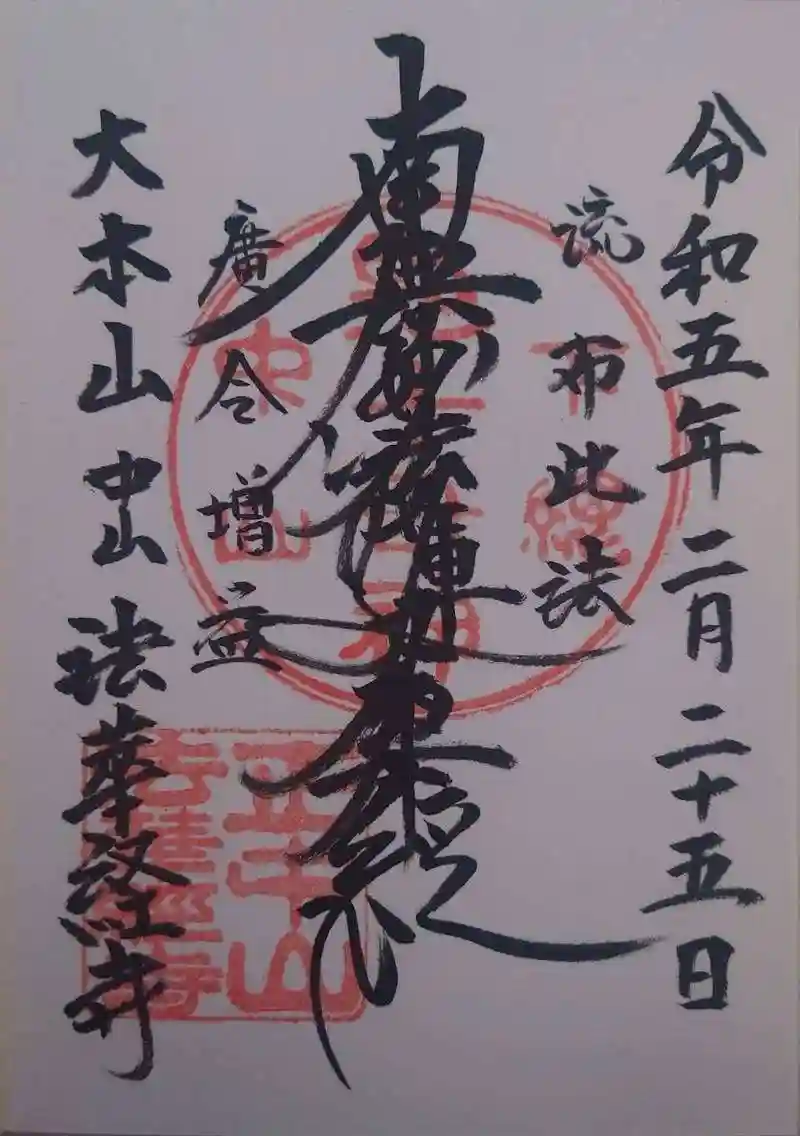 令和五年二月二十五日
流布此法
南無妙法蓮華経
廣令増益
大本山中山法華経寺
正中山
法華經寺